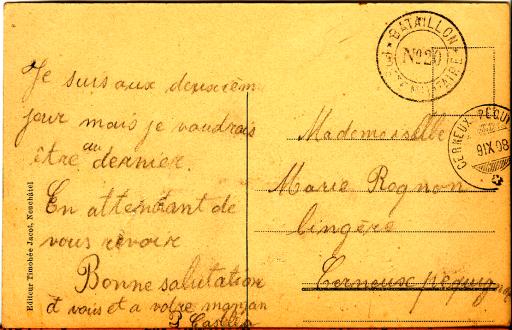 Je suis aux deuxièm
jour mais je voudrais
être au dernier.
En attendant de
vous revoir
Bonne salutation
à vous et a votre maman
Editeur Timothée Jacot, Neuchâtel
BATAILLON
No 20
CERNEUX-PÉQUI
9IX08
Mademoiselle
Marie Rognon
lingère
Cerneux péquig